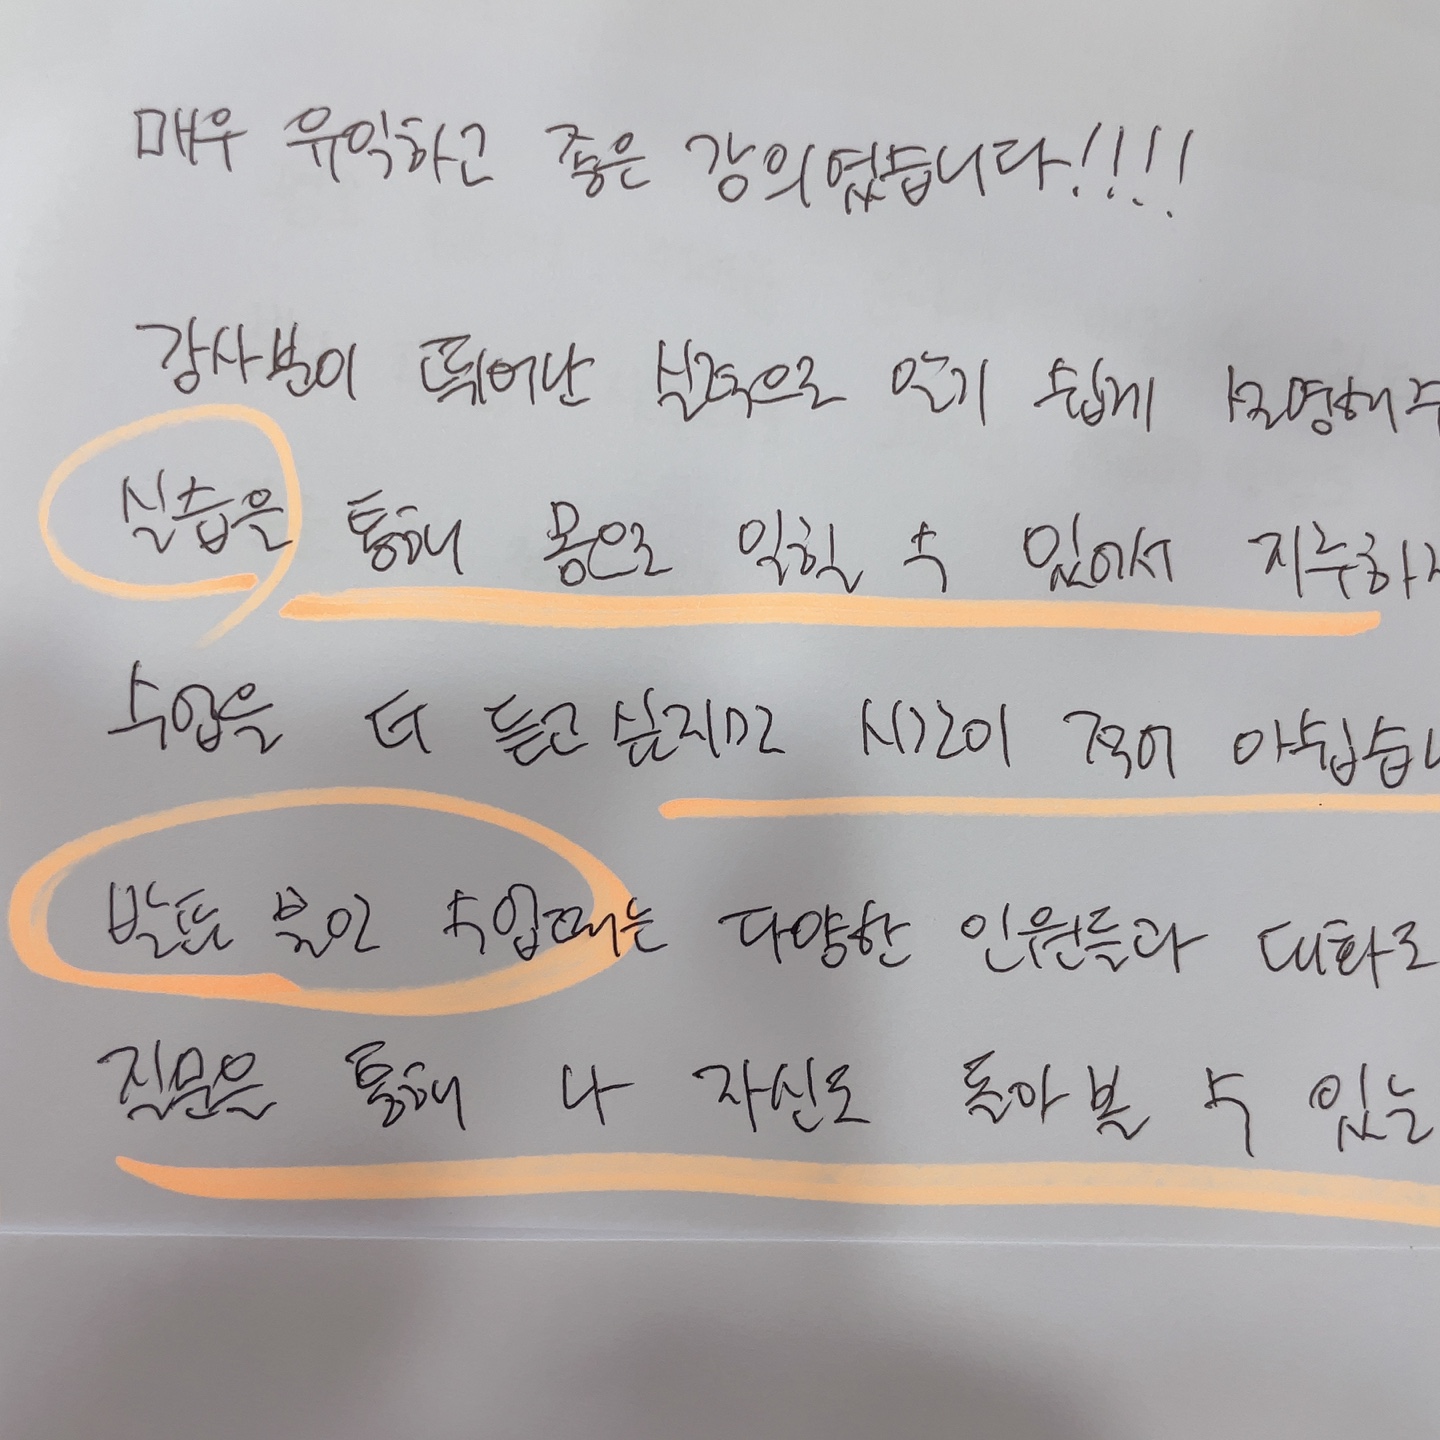 매우 유익하고 좋은 강의였습니다!!!!
강사분이 뛰어난 실력으로 알기 쉽게 설명해주
실습을 통해 몸으로 익힐 수 있어서 지루하
수업을 더 듣고싶지만 시간이 적어 아쉽습니
수업때는 다양한 인원들과 대화로
질문을 통해 나 자신도 돌아볼 수 있는